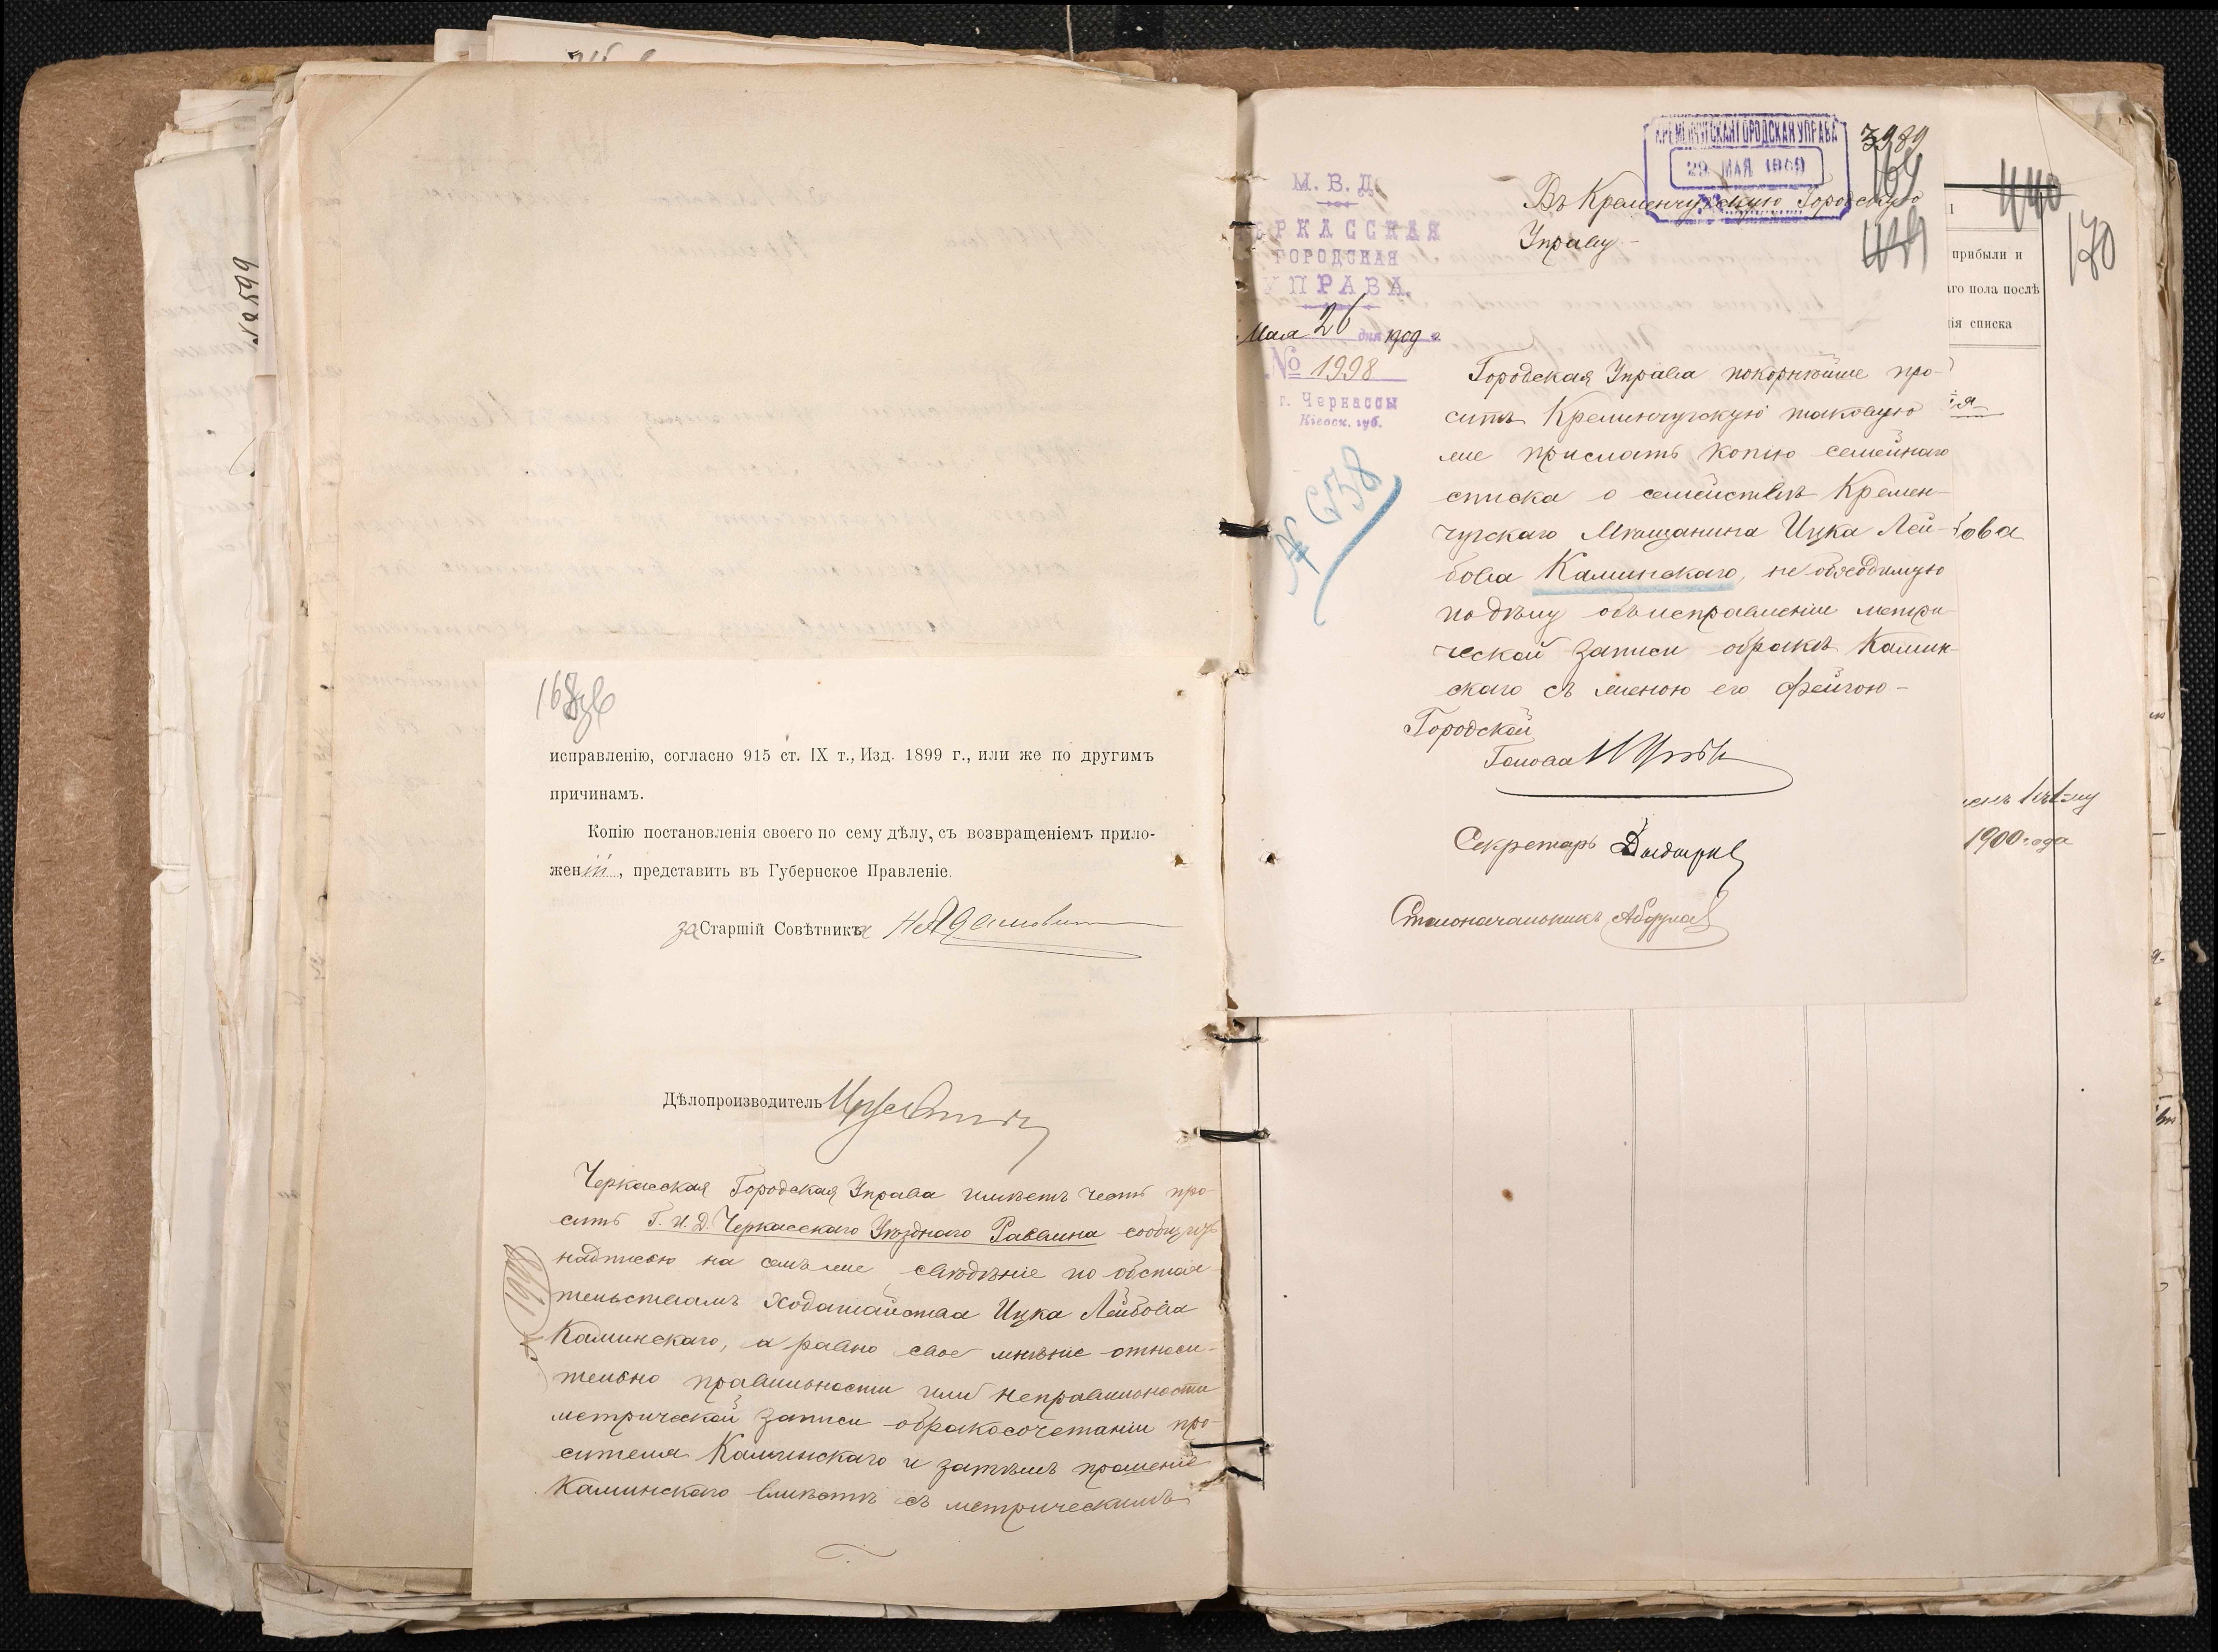 № 2599
168
исправленію, согласно 915 ст. IX т., Изд. 1899 г., или же по другимъ
причинамъ.
Копію постановленія своего по сему дѣлу, съ возвращеніемъ прило-
женій, представить въ Губернское Правленіе.
за Старшій Совѣтника
Дѣлопроизводитель
Черкасская Городская Управа имѣетъ честь про-
сить Г. И. Д. Черкасскаго Уѣзднаго Раввина сообщить
надписью на семъ же свѣдѣніе по обстоя-
тельствамъ ходатайства Ицка Лейбова
Каминскаго, а равно свое мнѣніе относи-
тельно правильности или неправильности
метрической записи о бракосочетаніи про-
сителя Каминскаго и затѣмъ прошеніе
Каминскаго вмѣстѣ съ метрическимъ
1998
КРЕМЕНЧУГСКАЯ ГОРОДСКАЯ УПРАВА
29 МАЯ 1909
3989
М. В. Д.
ЧЕРКАССКАЯ
ГОРОДСКАЯ
УПРАВА.
Мая 26 дня 1909 г.
№ 1998
г. Черкассы
Кіевск. губ.
№ 638
Въ Кременчугскую Городскую
Управу.
Городская Управа покорнѣйше про-
ситъ Кременчугскую таковую
же прислать копію семейнаго
списка о семействѣ Кремен-
чугскаго Мѣщанина Ицка Лей-
бова Каминскаго, необходимую
по дѣлу объ исправленіи метри-
ческой записи о бракѣ Камин-
скаго съ женою его Фейгою-
Городской
Голова
Секретарь
Столоначальникъ
440
170
прибыли и
аго пола послѣ
ія списка
ова
1900 года